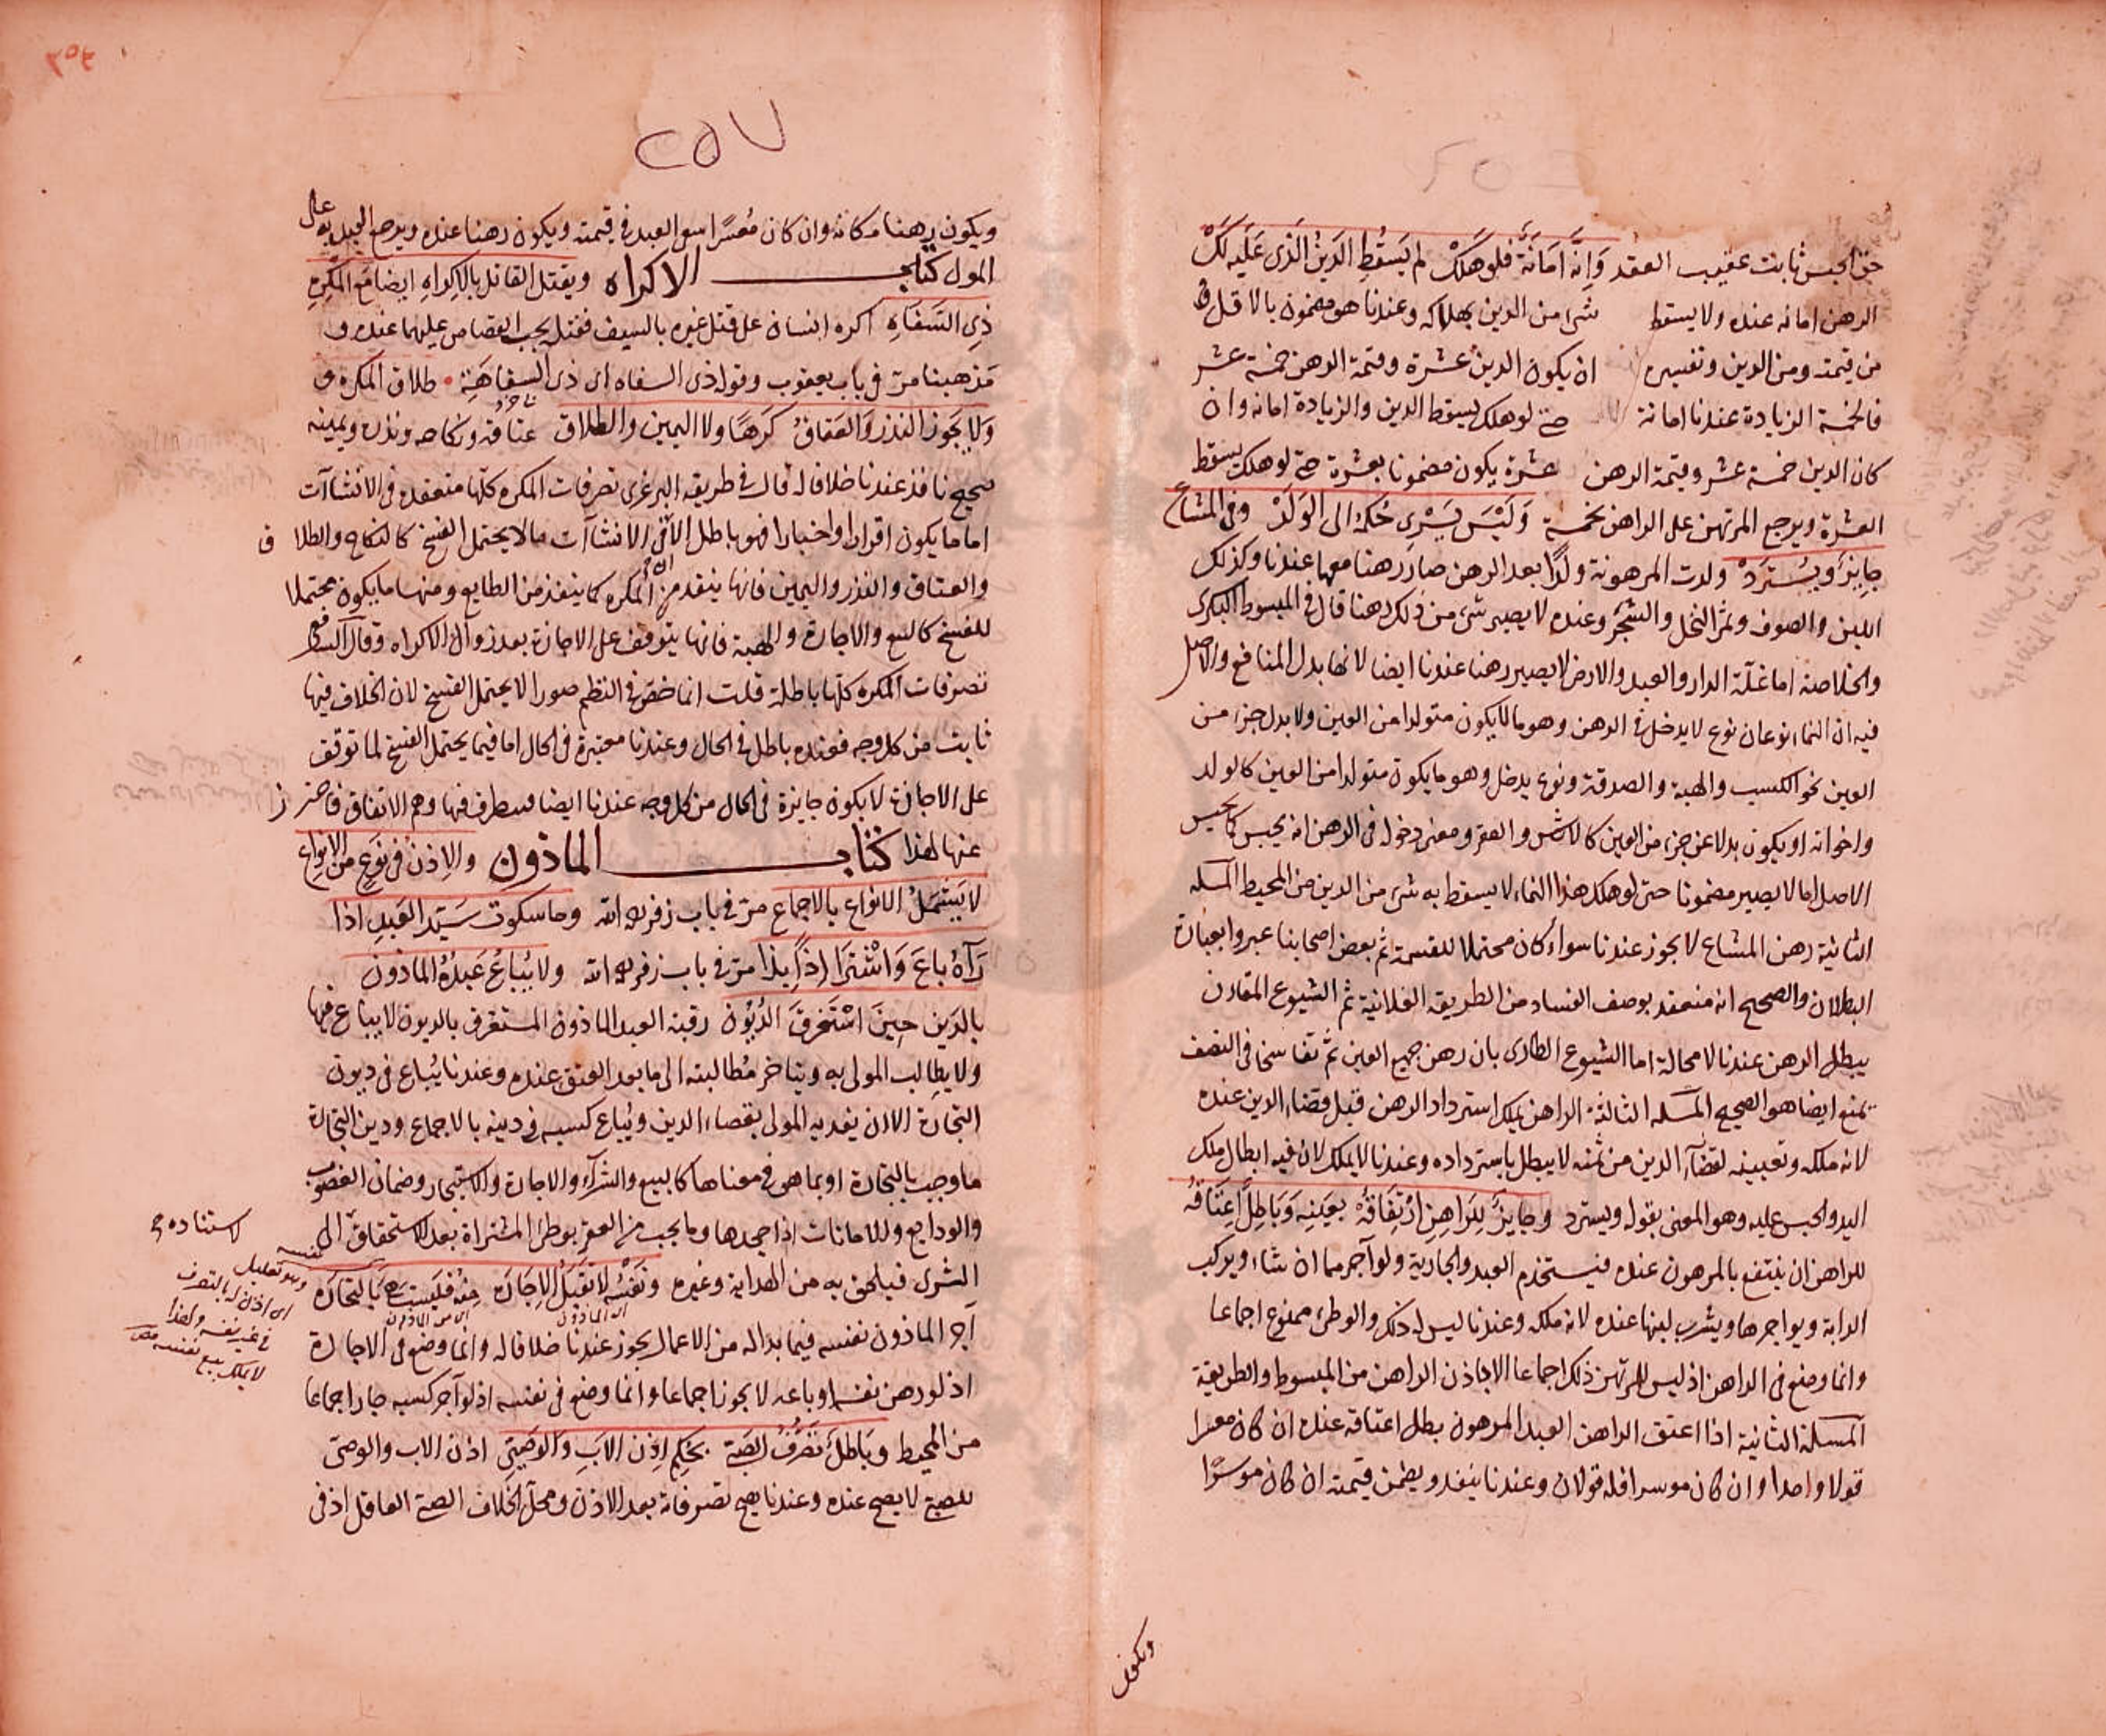 حق الحبس ثابت عقيب العقد وَاِنَّه اَمَانَةٌ فلو هَلَكْ لم يَسقُطِ الدَينُ الذَى عَلَيه لَكْ
الرهن امانه عنده ولا يسقط شىء من الدين بهلاكه وعندنا هو مضمون بالاقل
من قيمته ومن الدين وتفسيره ان يكون الدين عشرة وقيمة الرهن خمسة عشر
فالخمسة الزيادة عندنا امانة حتى لو هلك يسقط الدين والزيادة امانه وان
كان الدين خمسة عشر وقيمة الرهن عشرة يكون مضمونا بعشرة حتى لو هلك يسقط
العشرة ويرجع المرتهن على الراهن بخمسة وَلَيْسَ يَسْرِى حُكمهُ الى الوَلَدْ وفى المشاع
جايِزٌ وَيُسْتَرَدْ ولدت المرهونة ولدًا بعد الرهن صار رهنا معها عندنا وكذلك
اللبن والصوف وثمر النخل والشجر وعنده لا يصير شىء من ذلك رهنا قال فى المبسوط البكرى
والخلاصة اما غلّة الدار والعبد والارض لا يصير رهنا عندنا ايضا لانها بدل المنافع والاصل
فيه ان النماء نوعان نوع لا يدخل فى الرهن وهو ما لا يكون متولدا من العين ولا بدل جزء من
العين نحو الكسب والهبة والصدقة ونوع يدخل وهو ما يكون متولدا من العين كالولد
واخواته او يكون بدلا عن جزء من العين كالارش والعقر ومعنى دخوله فى الرهن انه يحبس كما يحبس
الاصل اما لا يصير مضمونا حتى لو هلك هذا النماء لا يسقط به شىء من الدين من المحيط المسله
الثانية رهن المشاع لا يجوز عندنا سواء كان محتملا للقسمة ثم بعض اصحابنا عبروا بعبارة
البطلان والصحيح انه منعقد بوصف الفساد من الطريقه العلائية ثم الشيوع المقارن
يبطل الرهن عندنا لا محالة اما الشيوع الطارى بان رهن جميع العين ثم تفاسخا فى النصف
يمنع ايضا هو الصحيح المسله الثالثة الراهن يملك استرداد الرهن قبل قضاء الدين عنده
لانه ملكه وتعيينه لقضآء الدين من ثمنه لا يبطل باسترداده وعندنا لا يملك لان فيه ابطال ملك
اليد والحبس عليه وهو المعنى بقوله ويسترد وجايِزٌ لِلرَاهِنِ ارْتِفَاقُهُ بعَينِه وَبَاطِلٌ اِعتَاقُهُ
للراهن ان ينتفع بالمرهون عنده فيستخدم العبد والجارية ولو آجرهما ان شاء ويركب
الدابة ويواجرها ويشرب لبنها عنده لانه ملكه وعندنا ليس له ذلك والوطئ ممنوع اجماعا
وانما وضع فى الراهن اذ ليس للمرتهن ذلك اجماعا الا باذن الراهن من المبسوط والطريقة
المسلة الثانية اذا اعتق الراهن العبد المرهون بطل اعتاقه عنده ان كان معسرا
قولا واحدا وان كان موسرا فله قولان وعندنا ينفذ ويضمن قيمته ان كان موسرًا
ويكون
٢٥٧
ويكون رهنا مكانه وان كان مُعسرًا سعى العبد فى قيمته ويكون رهنا عنده ويرجع العبد به على
المولى كتاب الاكراه ويقتل القاتل بالاِكراهِ ايضا مَع المكْرِهِ
ذِى السَفاهِ اكره انسان على قتل غيره بالسيف فقتل يجب القصاص عليهما عنده و
مَذهبنا مرّ فى باب يعقوب وقوله ذى السفاه اى ذى السفاهَةِ طلاق المكره و
وَلا يجَوز النذر وَالعَتاقُ كَرهًا ولا اليمين والطلاق عتاقه ونكاحه ونذره ويمينه
صحيح نافذ عندنا خلافا له قال فى طريقه البرغرى تصرفات المكره كلّها منعقده فى الانشاآت
اما ما يكون اقرارا واخبارا فهو باطل الانشاآت ما لا يحتمل الفسخ كالنكاح والطلاق
والعتاق والنذر واليمين فانها ينفذ من المكره كما ينفذ من الطايع ومنها ما يكون محتملا
للفسخ كالبيع والاجارة والهبة فانها يتوقف على الاجازة بعد زوال الاكراه وقال الشافعى
تصرفات المكره كلّها باطلة قلت انما خصّ فى النظم صورا لا يحتمل الفسخ لان الخلاف فيها
ثابت من كل وجه فعنده باطل فى الحال وعندنا معتبرة فى الحال اما فيما يحتمل الفسخ لما توقف
على الاجازة لا يكون جايزة فى الحال من كل وجه عندنا ايضا فيتطرق فيها وهم الاتفاق فاحترز
عنها لهذا كتاب الماذون والاِذنُ فى نَوعٍ من الانواع
لا يَشمَلُ الانواع بالاجماع مرّ فى باب زفر رحمه الله وما سكوت سَيّد العَبدِ اذا
رَآهُ باعَ وَاشْتَرَا اِذنًا بذا مرّ فى باب زفر رحمه الله ولا يُباعُ عَبدُهُ الماذون
بالدَين حِينَ اسْتَغرقَ الدُيُون رقبة العبد الماذون المستغرق بالديون لا يباع فيها
ولا يطالب المولى به ويتاخر مُطالبته الى ما بعد العتق عنده وعندنا يُباع فى ديون
التجارة الا ان يفديه المولى بقضاء الدين ويُباع كسبه فى دينه بالاجماع ودين التجارة
ما وجب بالتجارة او بما هو فى معناها كالبيع والشرآء والاجارة والاستيجار وضمان الغصوب
والودايع والامانات اذا جحدها وما يجب من العقر بوطئ المشتراة بعد الاستحقاق لاستناده الى
الشرى فيلحق به من الهداية وغيره ونَفْسُه لا تَقبَلُ الاِجَارَه مِنهُ فَليسَت بالتجارَه
آجر الماذون نفسه فيما بداله من الاعمال يجوز عندنا خلافا له وانما وضع فى الاجارة
اذ لو رهن نفسه او باعه لا يجوز اجماعا وانما وضع فى نفسه اذ لو آجر كسبه جاز اجماعا
من المحيط وبَاطِلٌ تصَرُّفُ الصَبِىّ بحُكِمِ اِذن الاَبِ وَالوَصِىِّ اذن الاب والوصىّ
للصبىّ لا يصح عنده وعندنا يصح تصرفاته بعد الاذن ومحلّ الخلاف الصبىّ العاقل اذ فى
وهو تعليل
اى اذن له بالتصرف
فى غير نفسه ولهذا
لا يملك بيع نفسه